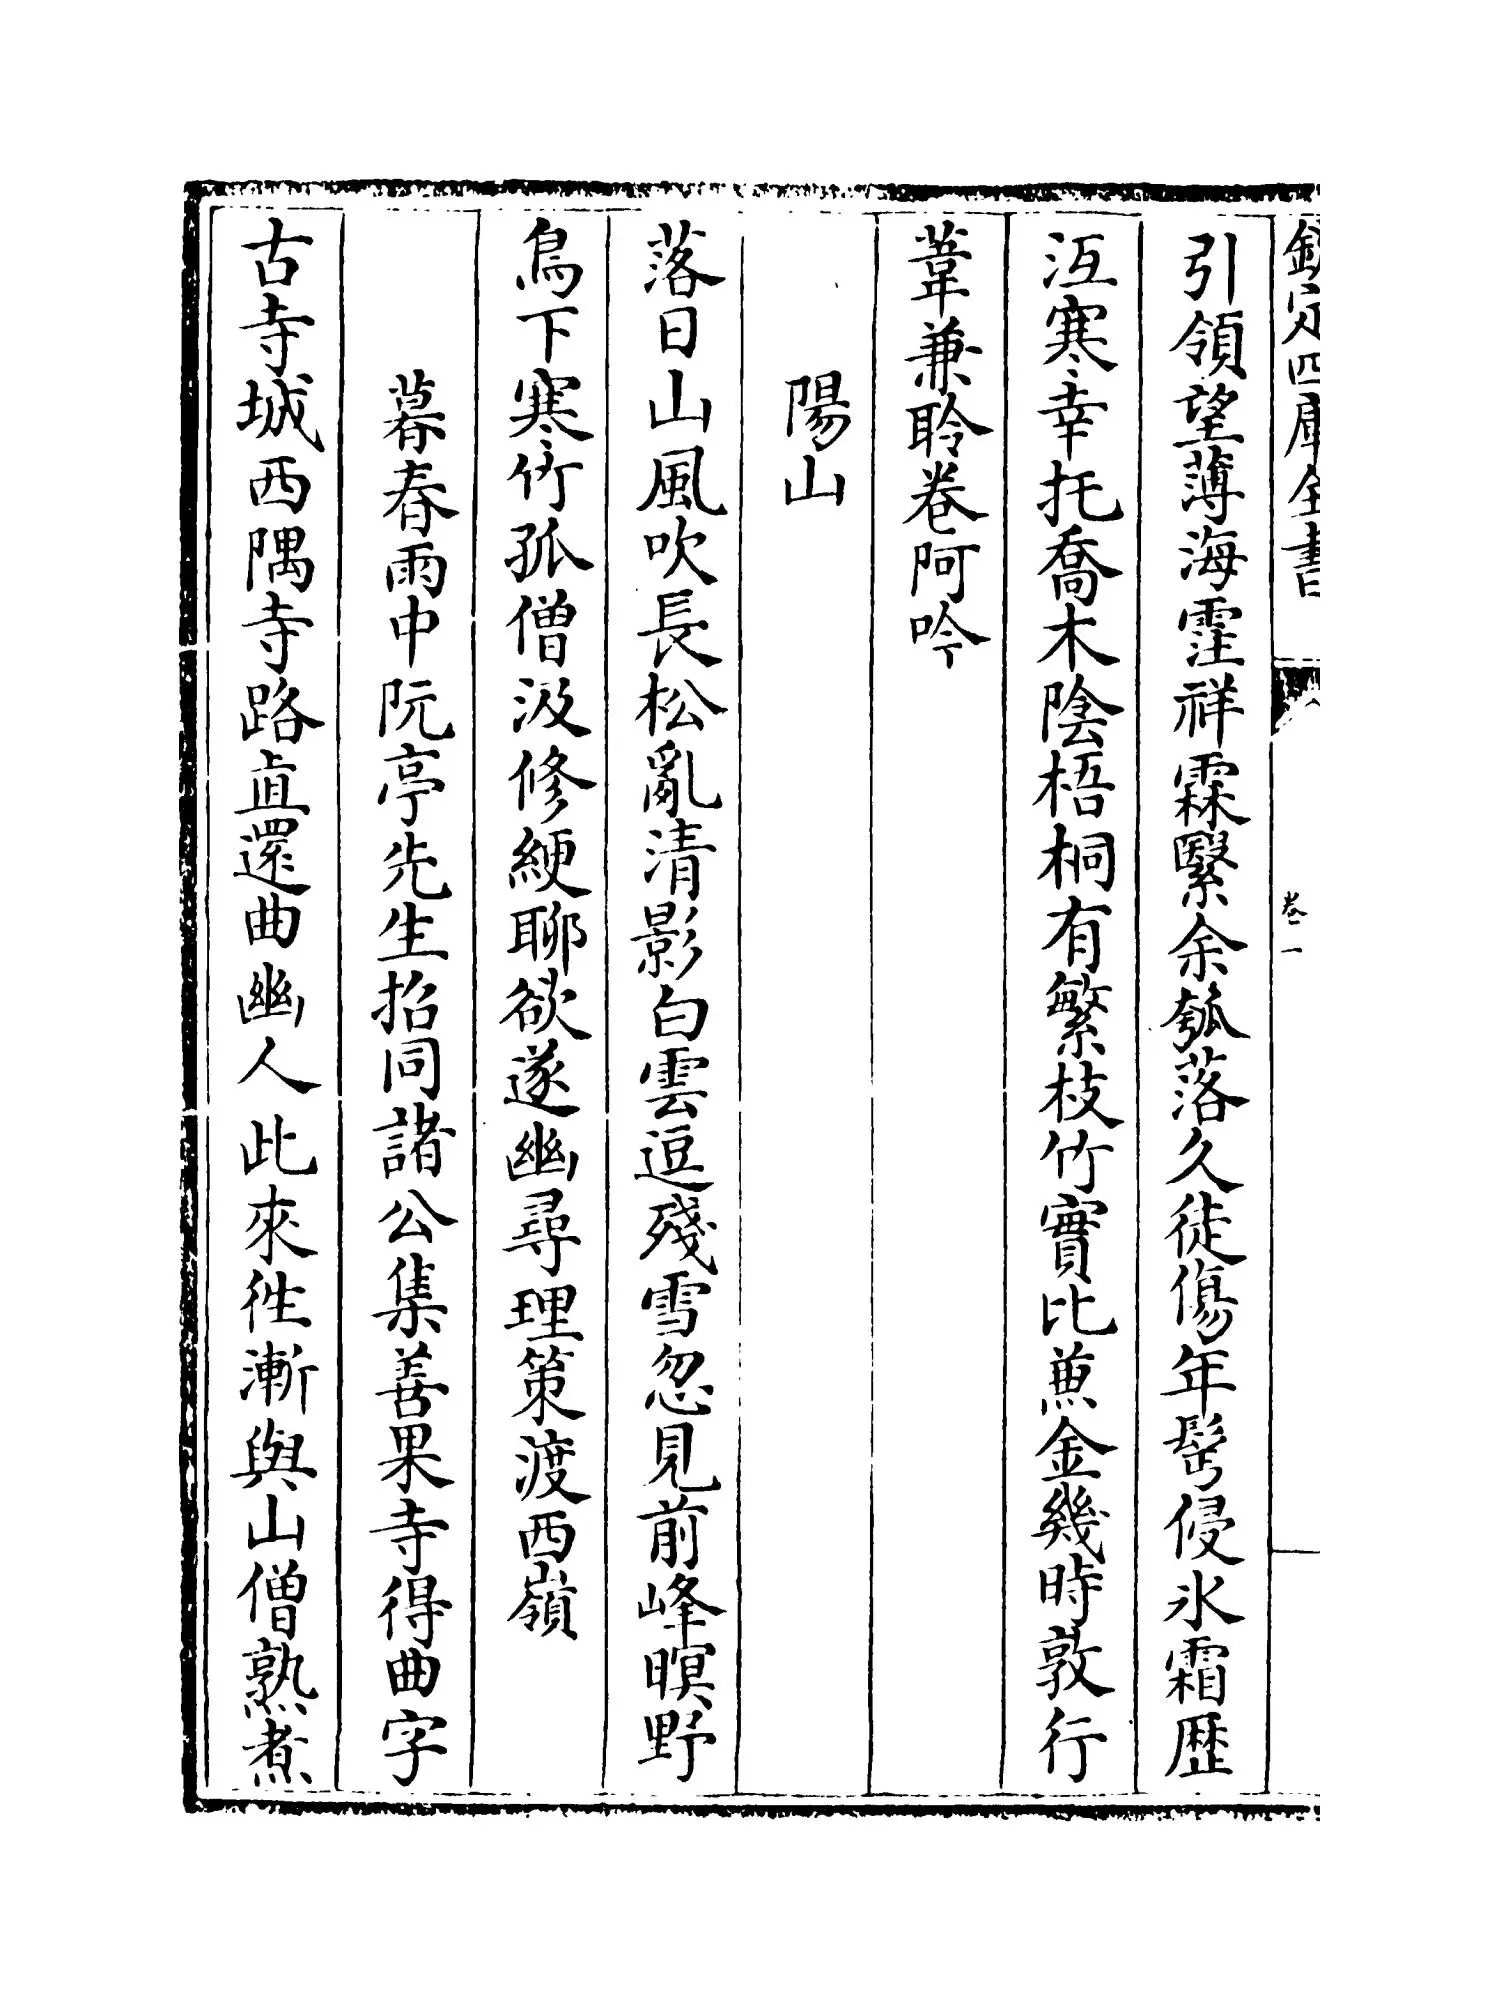 欽定四庫全書
卷一
引領望薄海霔祥霖繄余瓠落久徒傷年髩侵氷霜歴
沍寒幸托喬木陰梧桐有繁枝竹實比兼金幾時敦行
葦兼聆卷阿吟
陽山
落日山風吹長松亂清影白雲逗殘雪忽見前峰暝野
鳥下寒竹孤僧汲修綆聊欲遂幽尋理策渡西嶺
暮春雨中阮亭先生招同諸公集善果寺得曲字
古寺城西隅寺路直還曲幽人此來徃漸與山僧熟煮